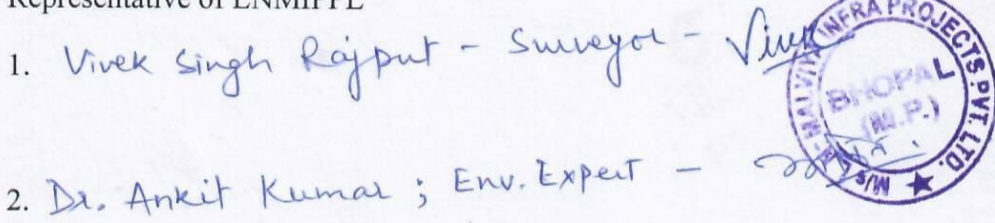 Representative of ENMIPPL
1. Vivek Singh Rajput - Surveyor - Vivek
2. Dr. Ankit Kumar ; Env. Expert -
MALVIYA INFRA PROJECTS PVT. LTD.
BHOPAL
(M.P.)